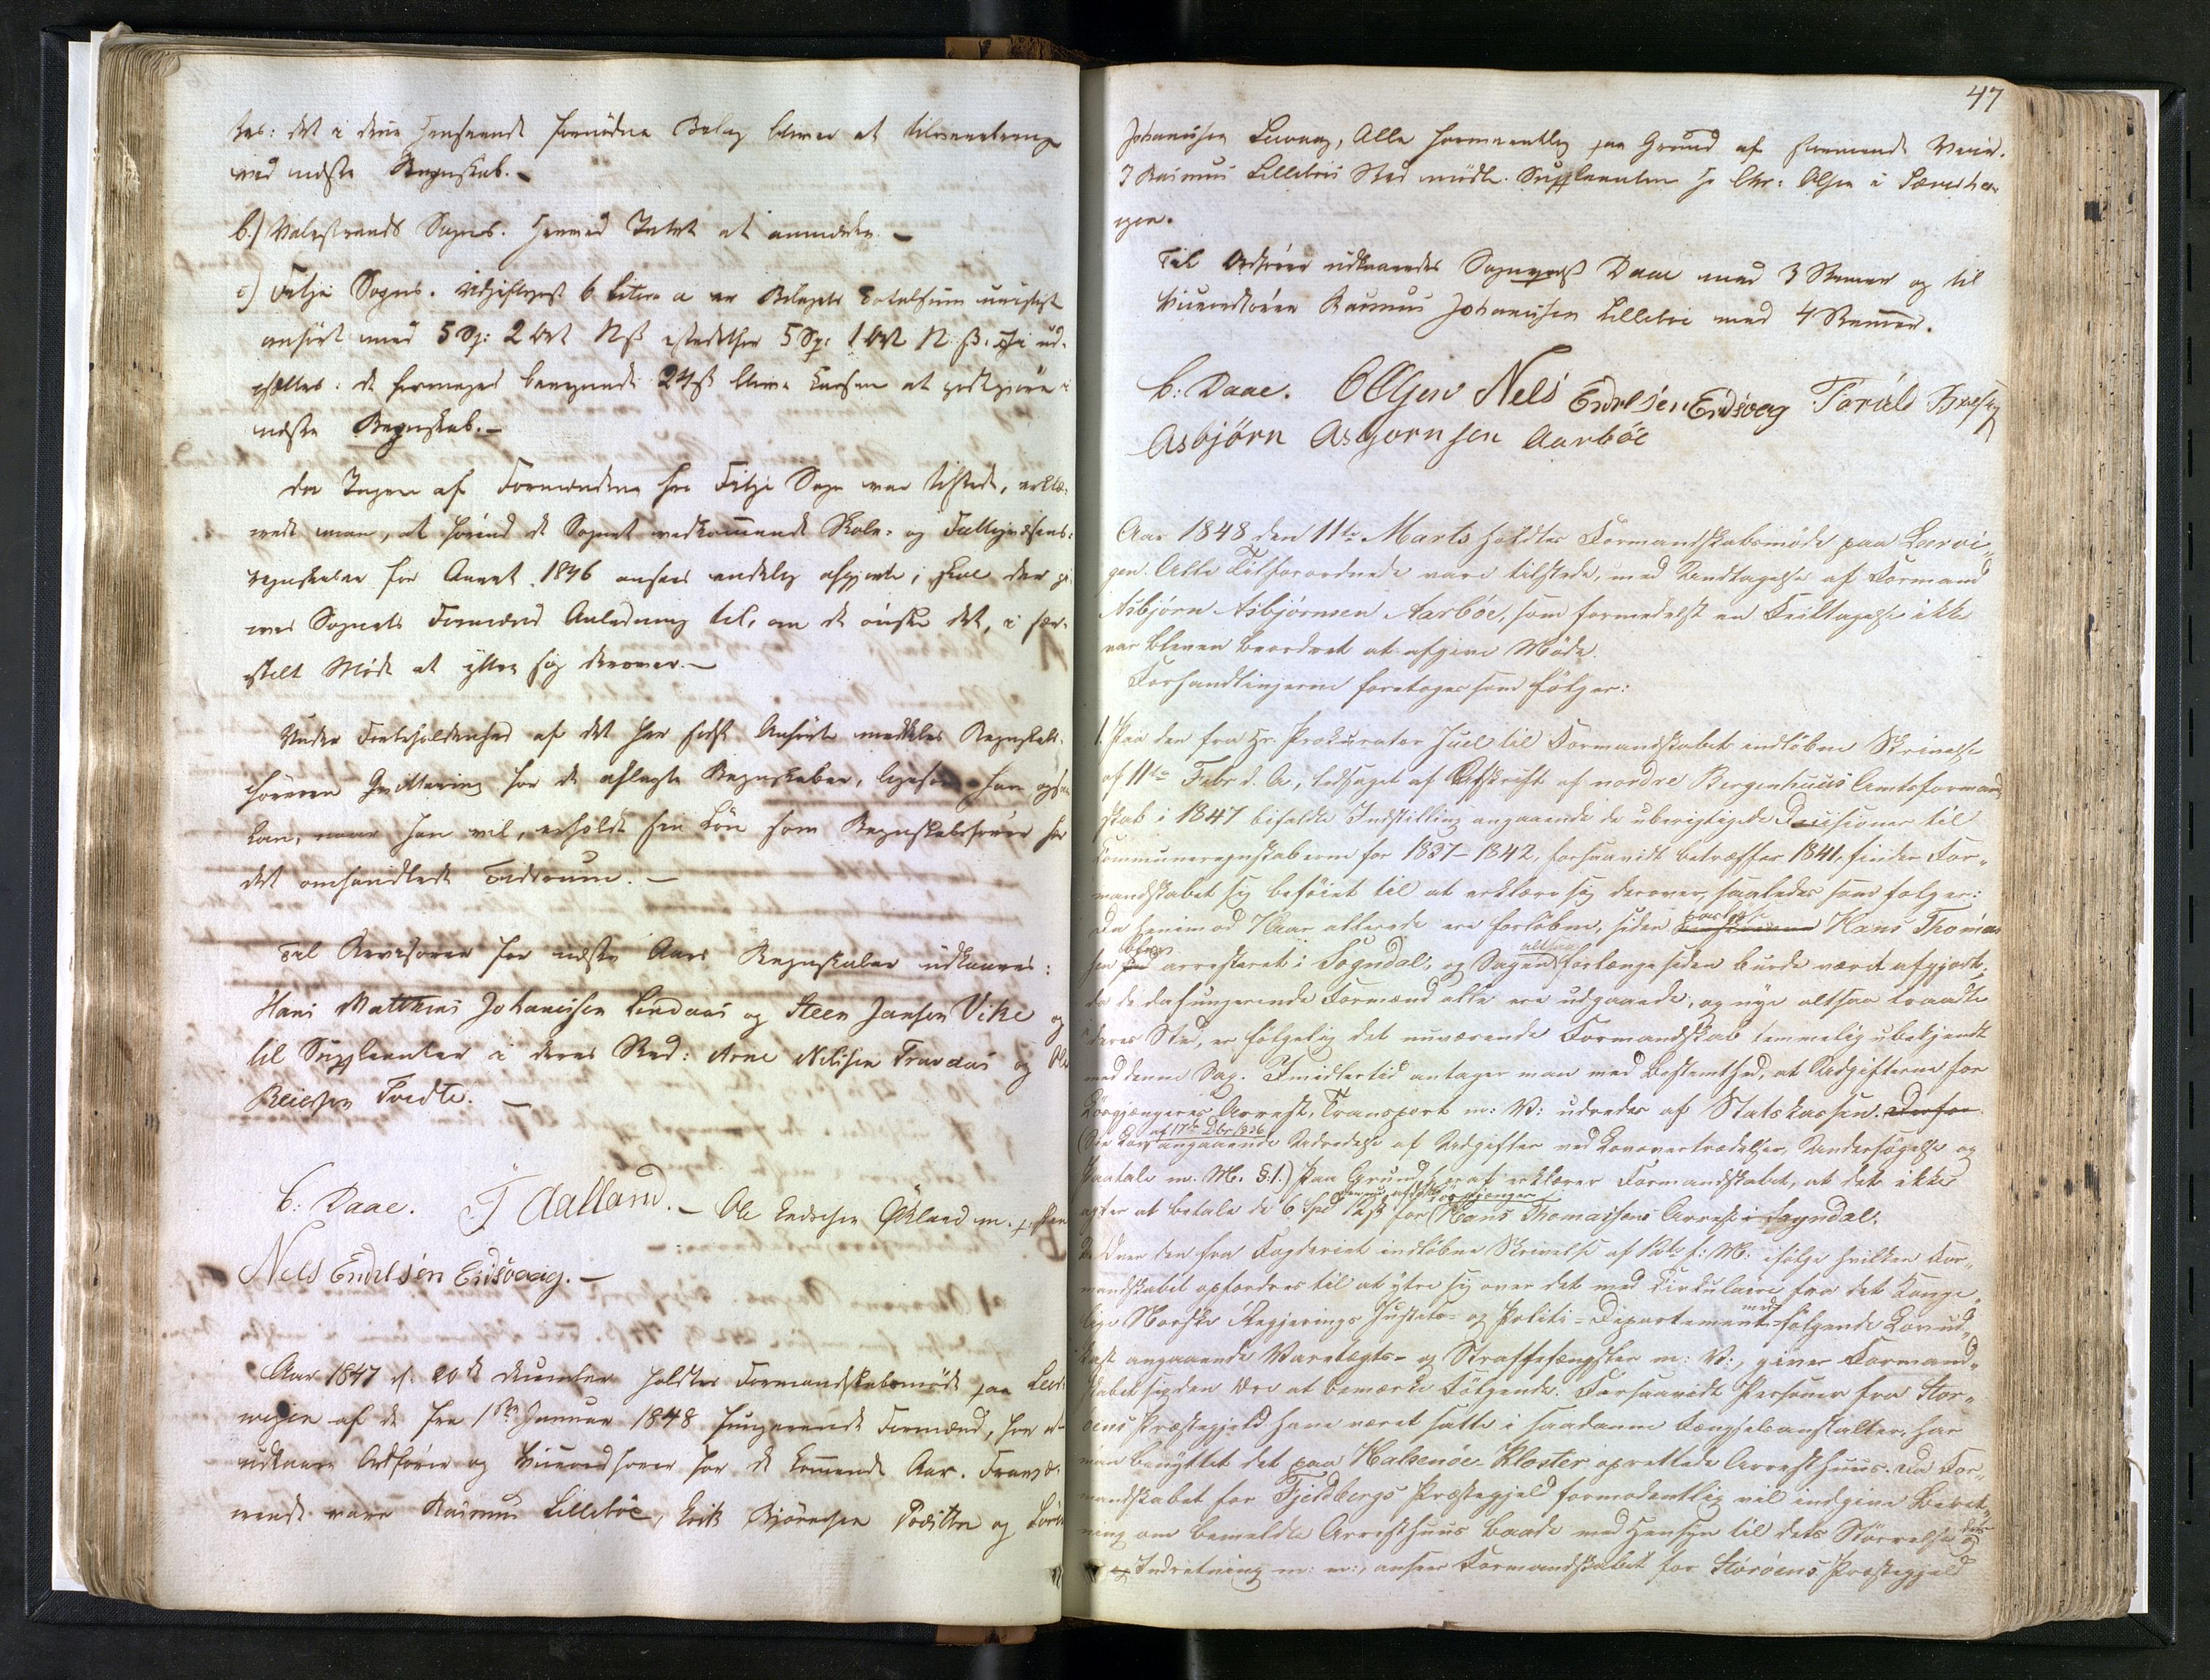 tes: det i dene Henseende fornødne Bilag bliver at tilveiebringe
ved næste Regnskab. –
b.) Valestrands Sogns. Herved Intet at anmærke –
c) Fitje Sogns. Udgiftspost 6 Litra a er Bilagets Totalsum urigtigt
anført med 5 Sp: 2 Ort 12 ß istedetfor 5 Sp: 1 Ort 12 ß.
de formeget beregnede 24 ß blive Kassen at godtgjøre i
næste Regnskab. –
Da Ingen af Formændene fra Fitje Sogn var tilstede, erklæ-
rede man, at førend de Sognet vedkommende Skole- og Fattigvæsens-
regnskaber for Aaret 1846 ansees endelig afgjorte, skal der gi-
ves Sognets Formænd Anledning til, om de ønske det, i sær-
skilt Møde at yttre sig derover. –
Under Forbeholdenhed af det her sidst Anførte meddeles Regnskabs-
føreren Qvittering for de aflagte Regnskaber, ligesom han ogsaa
kan, naar han vil, erholde sin Løn som Regnskabsfører for
det omhandlede Tidsrum. –
Til Revisorer for næste Aars Regnskaber udkaares:
Hans Matthias Johannesen Lindaas og Steen Jansen Vike og
til Suppleanter i deres Sted: Arne Nilsen Travaas og Ole
Reiersen Tvedte. –
C: Daae. T Aalland. – Ole Endresen Økland m. p. Pen
Nels Endresen Eidsvaag. –
Aar 1847 d. 20de December holdtes Formandskabsmøde paa Ler-
vigen af de fra 1ste Januar 1848 fungerende Formænd, for at
udkaare Ordfører og Viceordfører for det kommende Aar. Fravæ-
rende vare Rasmus Lillebøe, Erik Bjørnsen og
47
Johannesen Leevaag, Alle formeentlig paa Grund af stormende Veir.
I Rasmus Lillebøes Sted mødte Suppleanten H. Chr: Olsen i Sæverha-
gen.
Til Ordfører udkaaredes Sognepræst Daae med 3 Stemmer og til
Viceordfører Rasmus Johannesen Lillebøe med 4 Stemmer.
C: Daae. OOlsen Nels Endresen Eidsvaag
Asbjørn Asbjørnsen Aarbøe
Aar 1848 den 11te Marts holdtes Formandskabsmøde paa Lervi-
gen. Alle Tilforordnede vare tilstede, med Undtagelse af Formand
Asbjørn Asbjørnsen Aarbøe, som formedelst en Feiltagelse ikke
var bleven beordret at afgive Møde.
Forhandlingerne foretoges som følger:
1. Paa den fra Hr. Prokurator Juel til Formandskabet indløbne Skrivelse
af 11te Febr d. A., ledsaget af Afskrift af nordre Bergenhuus Amtsformand-
skab i 1847 bifaldte Indstilling angaaende de uberigtigede Decisioner til
Kommuneregnskaberne for 1837–1842, forsaavidt betræffer 1841, finder For-
mandskabet sig beføiet til at erklære sig derover, saaledes som følger:
Da henimod 7 Aar allerede ere forløbne, siden Hans Thomas-
sen blev arresteret i Sogndal, og Sagen altsaa forlængesiden burde været afgjort;
da de dafungerende Formænd alle ere udgaaede, og nye altsaa traadte
i deres Sted, er følgelig det nuværende Formandskab temmelig ubekjendt
med denne Sag. Imidlertid antager man med Bestemthed, at Udgifterne for
Løsgjængeres Arrest, Transport m: V: udredes af Statskassen. Derfor
(See Lov af 17de Dbr 1836 angaaende Udredelse af Udgifter ved Lovovertrædelser, Undersøgelse og
Paatale m. M. §.1.) Paa Grund heraf erklærer Formandskabet, at det ikke
agter at betale de 6 Spd for Løsgjænger Hans Thomassens Arrest i Sogndal.
2. Over den fra Fogderiet indløbne Skrivelse af f: M: ifølge hvilken For-
mandskabet opfordres til at ytre sig over det med Cirkulaire fra det Konge-
lige Norske Regjerings Justits- og Politi-Departement medfølgende Lovud-
kast angaaende Varetægts- og Straffefængsler m: V:, giver Formand-
skabet sig den Ære at bemærke Følgende. Forsaavidt Personer fra Stor-
øens Præstegjeld have været satte i saadanne Fængselsanstalter, har
man benyttet det paa Halsenøe Kloster oprettede Arresthuus. Da For-
mandskabet for Fjeldbergs Præstegjeld formodentlig vil indgive Beret-
ning om bemeldte Arresthuus baade med Hensyn til dets Størrelse og dets
Indretning m: m:, anseer Formandskabet for Storøens Præstegjeld